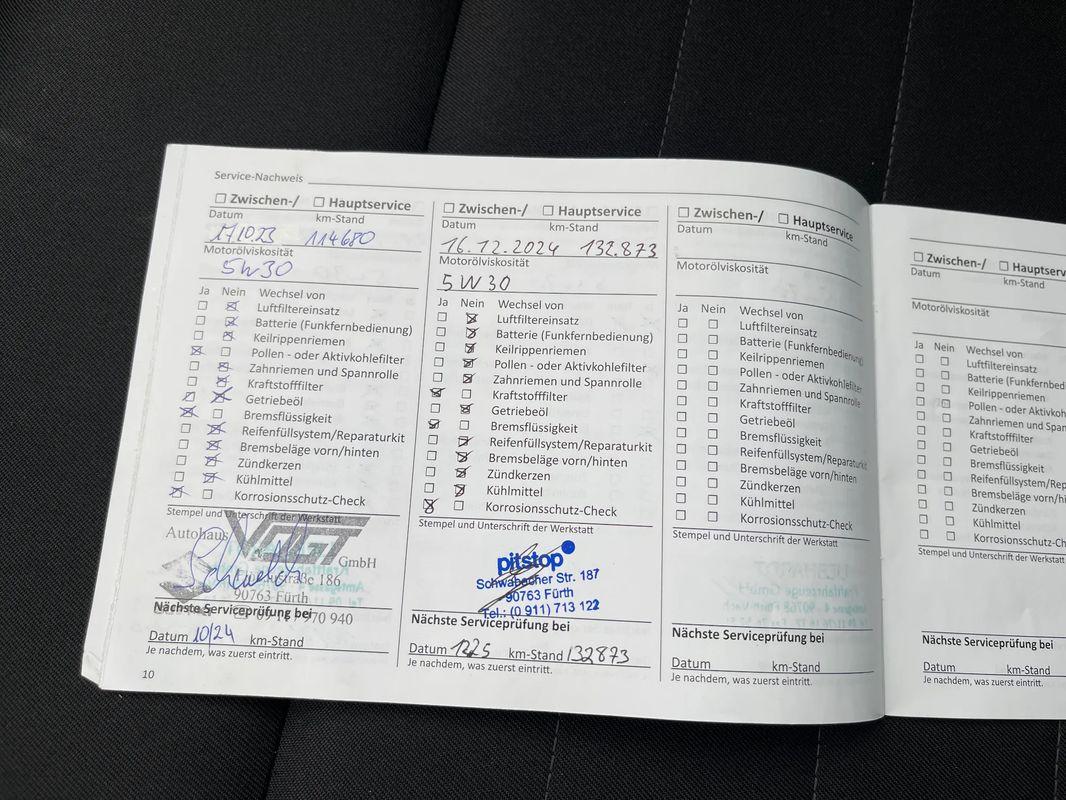 Service-Nachweis
☐ Zwischen-/ ☐ Hauptservice
Datum km-Stand
17.10.23 114680
Motorölviskosität
5W30
Ja Nein Wechsel von
☐ ☒ Luftfiltereinsatz
☐ ☒ Batterie (Funkfernbedienung)
☐ ☒ Keilrippenriemen
☒ ☐ Pollen - oder Aktivkohlefilter
☐ ☒ Zahnriemen und Spannrolle
☐ ☒ Kraftstofffilter
☐ ☒ Getriebeöl
☒ ☐ Bremsflüssigkeit
☐ ☒ Reifenfüllsystem/Reparaturkit
☐ ☒ Bremsbeläge vorn/hinten
☐ ☒ Zündkerzen
☐ ☒ Kühlmittel
☒ ☐ Korrosionsschutz-Check
Stempel und Unterschrift der Werkstatt
Autohaus VOGT GmbH
straße 186
90763 Fürth
970 940
Nächste Serviceprüfung bei
Datum 10/24 km-Stand
Je nachdem, was zuerst eintritt.
10
☐ Zwischen-/ ☐ Hauptservice
Datum km-Stand
16.12.2024 132.873
Motorölviskosität
5W30
Ja Nein Wechsel von
☐ ☒ Luftfiltereinsatz
☐ ☒ Batterie (Funkfernbedienung)
☐ ☒ Keilrippenriemen
☐ ☒ Pollen - oder Aktivkohlefilter
☐ ☒ Zahnriemen und Spannrolle
☒ ☐ Kraftstofffilter
☐ ☒ Getriebeöl
☒ ☐ Bremsflüssigkeit
☐ ☒ Reifenfüllsystem/Reparaturkit
☐ ☒ Bremsbeläge vorn/hinten
☐ ☒ Zündkerzen
☐ ☒ Kühlmittel
☒ ☐ Korrosionsschutz-Check
Stempel und Unterschrift der Werkstatt
pitstop
Schwabacher Str. 187
90763 Fürth
Tel.: (0 911) 713 122
Nächste Serviceprüfung bei
Datum 1225 km-Stand 132873
Je nachdem, was zuerst eintritt.
☐ Zwischen-/ ☐ Hauptservice
Datum km-Stand
Motorölviskosität
Ja Nein Wechsel von
☐ ☐ Luftfiltereinsatz
☐ ☐ Batterie (Funkfernbedienung)
☐ ☐ Keilrippenriemen
☐ ☐ Pollen - oder Aktivkohlefilter
☐ ☐ Zahnriemen und Spannrolle
☐ ☐ Kraftstofffilter
☐ ☐ Getriebeöl
☐ ☐ Bremsflüssigkeit
☐ ☐ Reifenfüllsystem/Reparaturkit
☐ ☐ Bremsbeläge vorn/hinten
☐ ☐ Zündkerzen
☐ ☐ Kühlmittel
☐ ☐ Korrosionsschutz-Check
Stempel und Unterschrift der Werkstatt
Nächste Serviceprüfung bei
Datum km-Stand
Je nachdem, was zuerst eintritt.
☐ Zwischen-/ ☐ Hauptserv
Datum km-Stand
Motorölviskosität
Ja Nein Wechsel von
☐ ☐ Luftfiltereinsatz
☐ ☐ Batterie (Funkfernbed
☐ ☐ Keilrippenriemen
☐ ☐ Pollen - oder Aktivkoh
☐ ☐ Zahnriemen und Span
☐ ☐ Kraftstofffilter
☐ ☐ Getriebeöl
☐ ☐ Bremsflüssigkeit
☐ ☐ Reifenfüllsystem/Rep
☐ ☐ Bremsbeläge vorn/hi
☐ ☐ Zündkerzen
☐ ☐ Kühlmittel
☐ ☐ Korrosionsschutz-Ch
Stempel und Unterschrift der Werkstatt
Nächste Serviceprüfung bei
Datum km-Stand
Je nachdem, was zuerst eintritt.